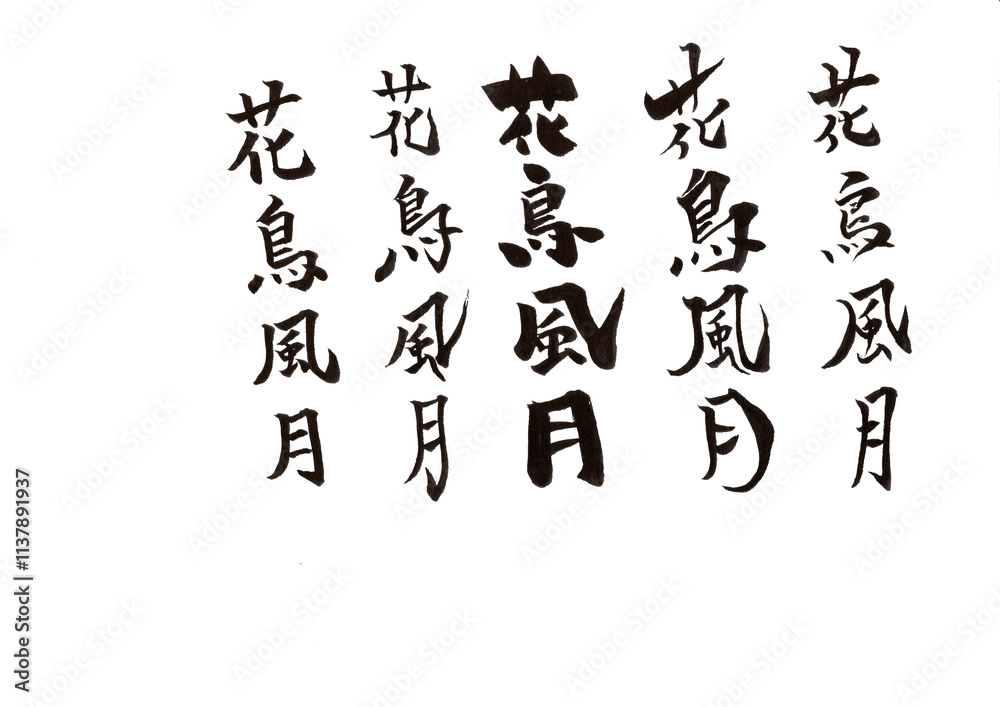 花鳥風月
花鳥風月
花鳥風月
花鳥風月
花鳥風月
Adobe Stock | #1137891937